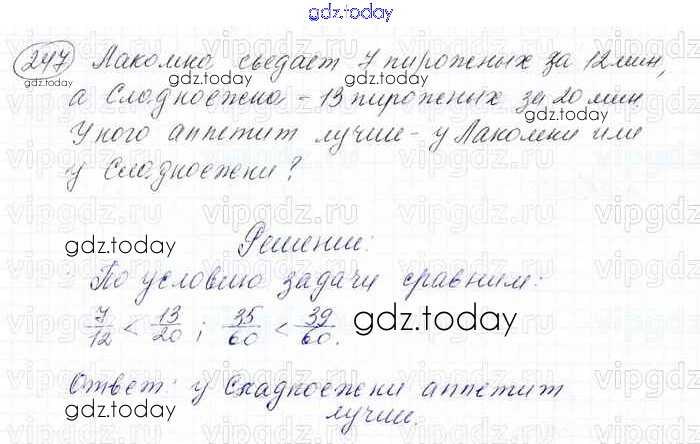 gdz.today
247 Лакомка съедает 7 пирожных за 12 мин,
gdz.today
а Сладкоежка - 13 пирожных за 20 мин.
У кого аппетит лучше - у Лакомки или
у Сладкоежки?
gdz.today
Решение:
По условию задачи сравним:
7/12 < 13/20 ; 35/60 < 39/60.
gdz.today
Ответ: у Сладкоежки аппетит
лучше.